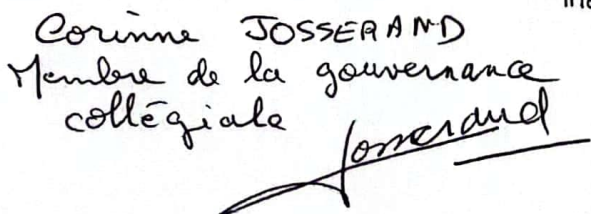 Corinne JOSSERAND
Membre de la gouvernance
collégiale
Josserand